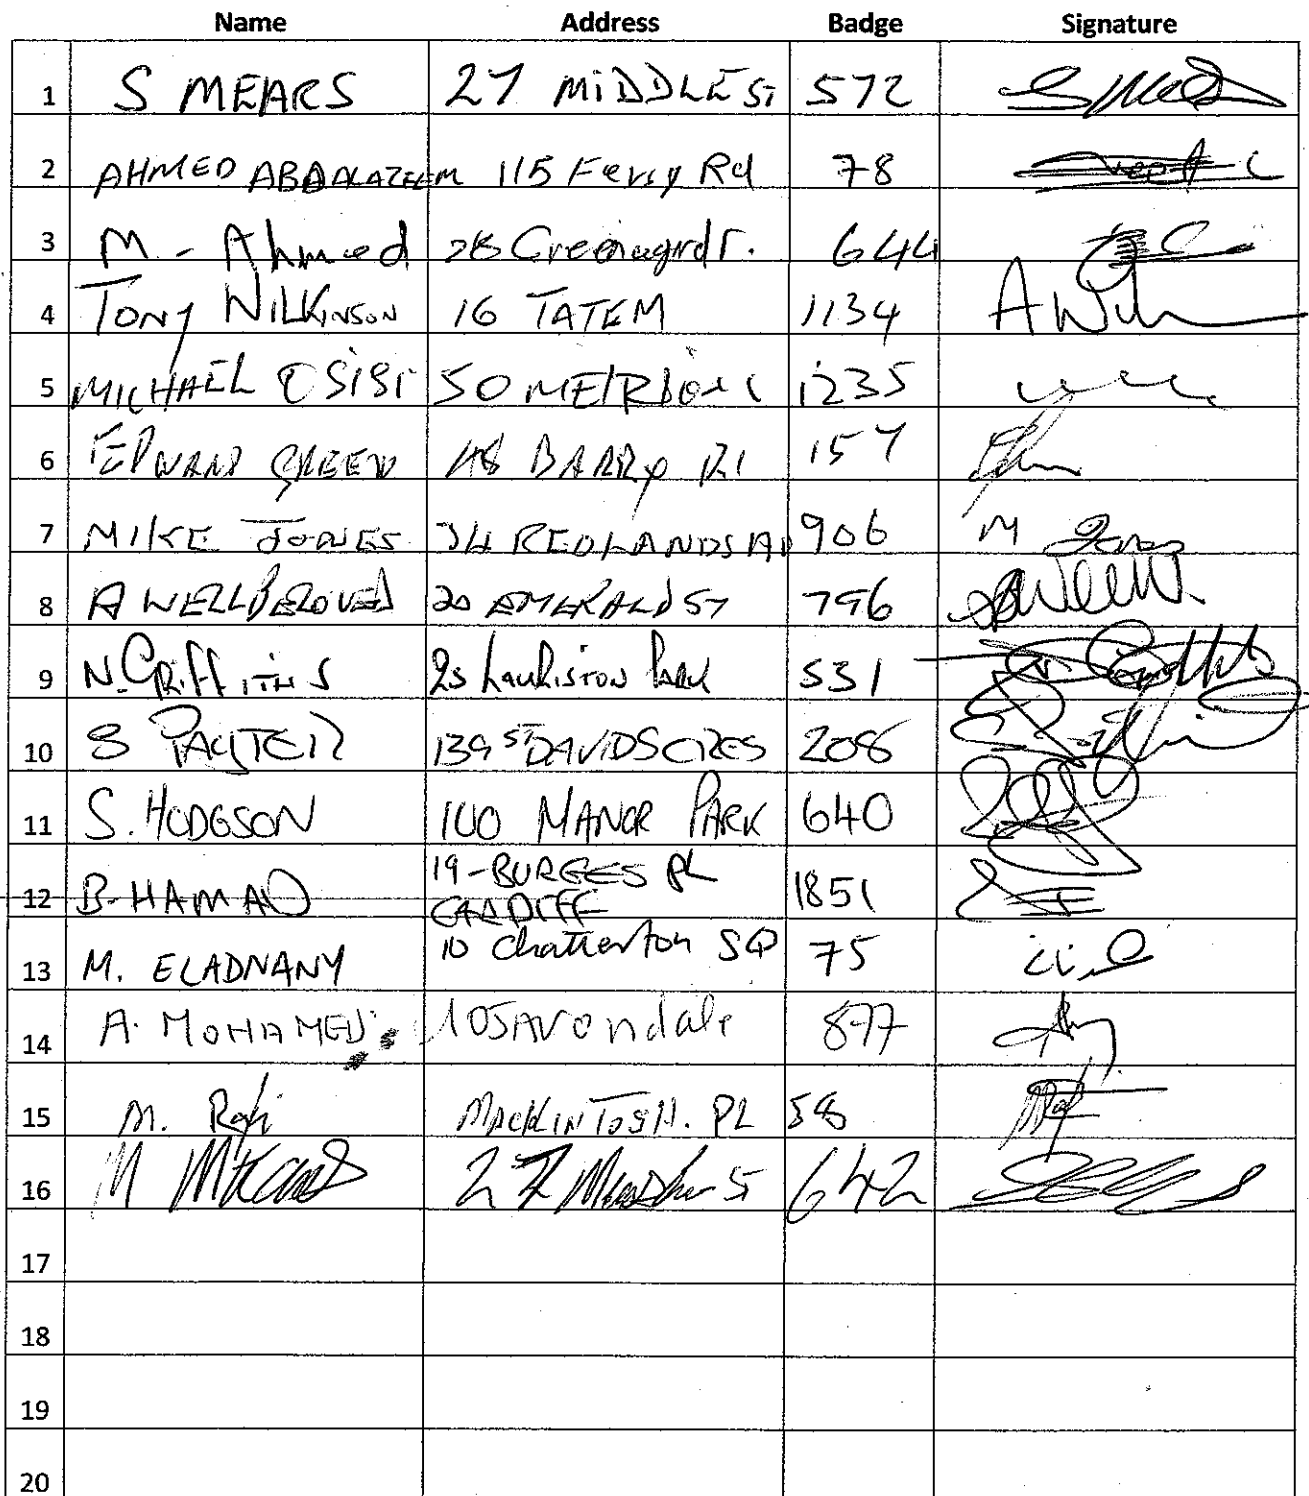 Name Address Badge Signature
1 S MEARS 27 MIDDLE ST 572
2 AHMED 115 Ferry Rd 78
3 M - Ahmed 644
4 TONY WILKINSON 16 TATEM 1134 A
5 MICHAEL OSISI 50 1235
6 EDWARD GREEN 48 BARRY RD 157
7 MIKE JONES 34 REDLANDS AV 906 M Jones
8 A WELLBELOVED 20 EMERALD ST 796
9 N. GRIFFITHS 25 Lauriston Park 531
10 S 139 ST DAVIDS CRES 208
11 S. HODGSON 100 MANOR PARK 640
12 B-HAMAD 19-BURGES PL 1851
CARDIFF
13 M. ELADNANY 10 Chatterton SQ 75
14 A. MOHAMED 105 Avondale 877
15 M. Rafi MACKINTOSH. PL 58
16 M 27 ST 642
17
18
19
20